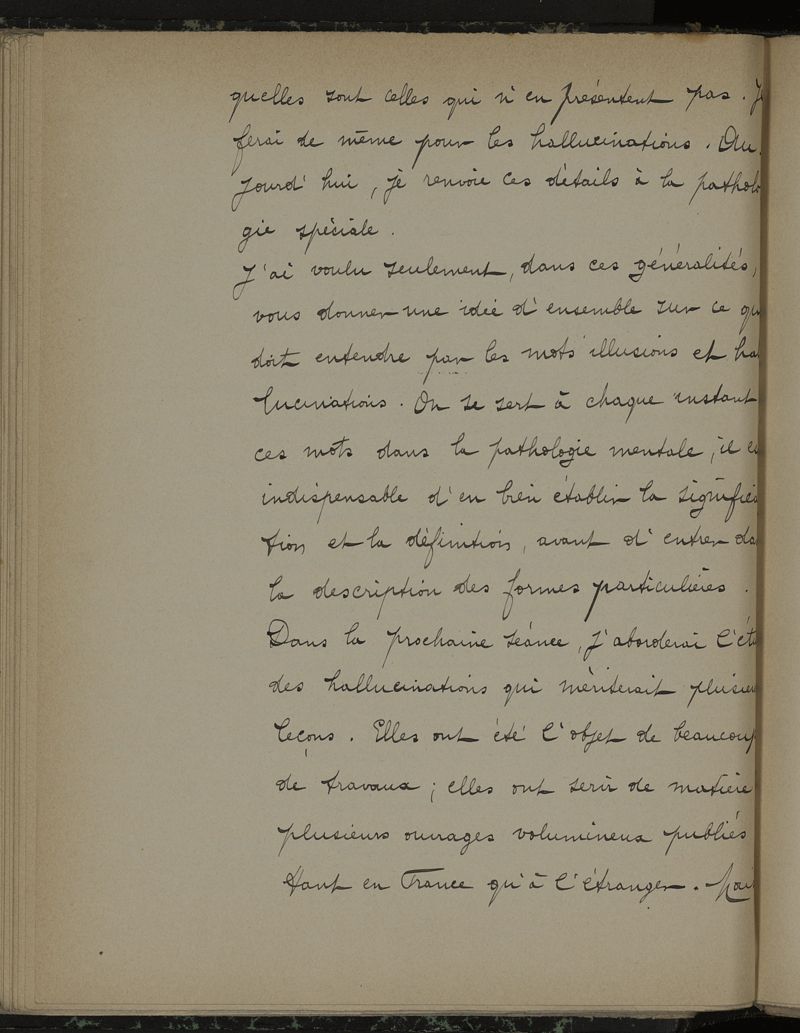 quelles sont celles qui n'en présentent pas. J
ferai de même pour les hallucinations. Au
jourd'hui, je renvoie ces détails à la pathol
gie spéciale.
J'ai voulu seulement, dans ces généralités,
vous donner une idée d'ensemble sur ce qu
doit entendre par les mots illusions et ha
lucinations. On se sert à chaque instant
ces mots dans la pathologie mentale, il e
indispensable d'en bien établir la signific
tion et la définition, avant d'entrer da
la description des formes particulières.
Dans la prochaine séance, j'aborderai l'ét
des hallucinations qui mériterait plusieu
leçons. Elles ont été l'objet de beaucoup
de travaux ; elles ont servi de matière
plusieurs ouvrages volumineux publiés
tant en France qu'à l'étranger. Mai